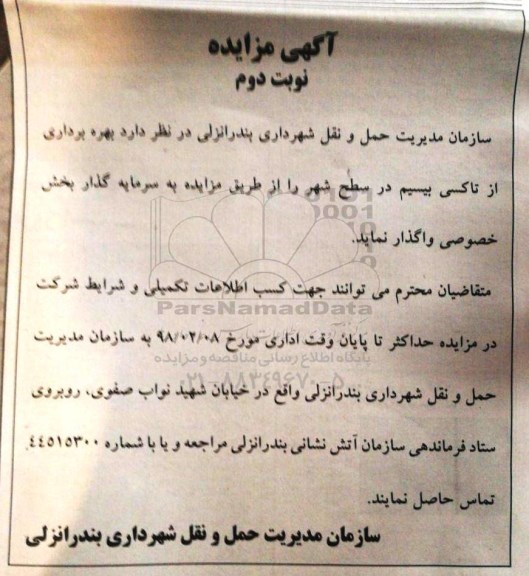 آگهی مزایده
نوبت دوم
سازمان مدیریت حمل و نقل شهرداری بندرانزلی در نظر دارد بهره برداری
از تاکسی بیسیم در سطح شهر را از طریق مزایده به سرمایه گذار بخش
خصوصی واگذار نماید.
متقاضیان محترم می توانند جهت کسب اطلاعات تکمیلی و شرایط شرکت
ParsNamadData
در مزایده حداکثر تا پایان وقت اداری مورخ ۹۸/۰۲/۰۸ به سازمان مدیریت
پایگاه اطلاع رسانی مناقصه و مزایده
حمل و نقل شهرداری بندرانزلی واقع در خیابان شهید نواب صفوی، روبروی
۰۲۱-۸۸۳۴۹۶۷۰-۵
ستاد فرماندهی سازمان آتش نشانی بندرانزلی مراجعه و یا با شماره ۴۴۵۱۵۳۰۰
تماس حاصل نمایند.
سازمان مدیریت حمل و نقل شهرداری بندرانزلی